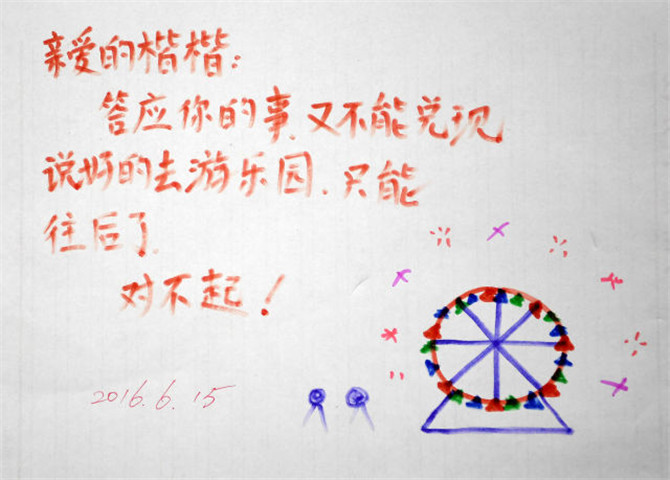 亲爱的楷楷:
答应你的事又不能兑现
说好的去游乐园.只能
往后了
对不起!
2016.6.15